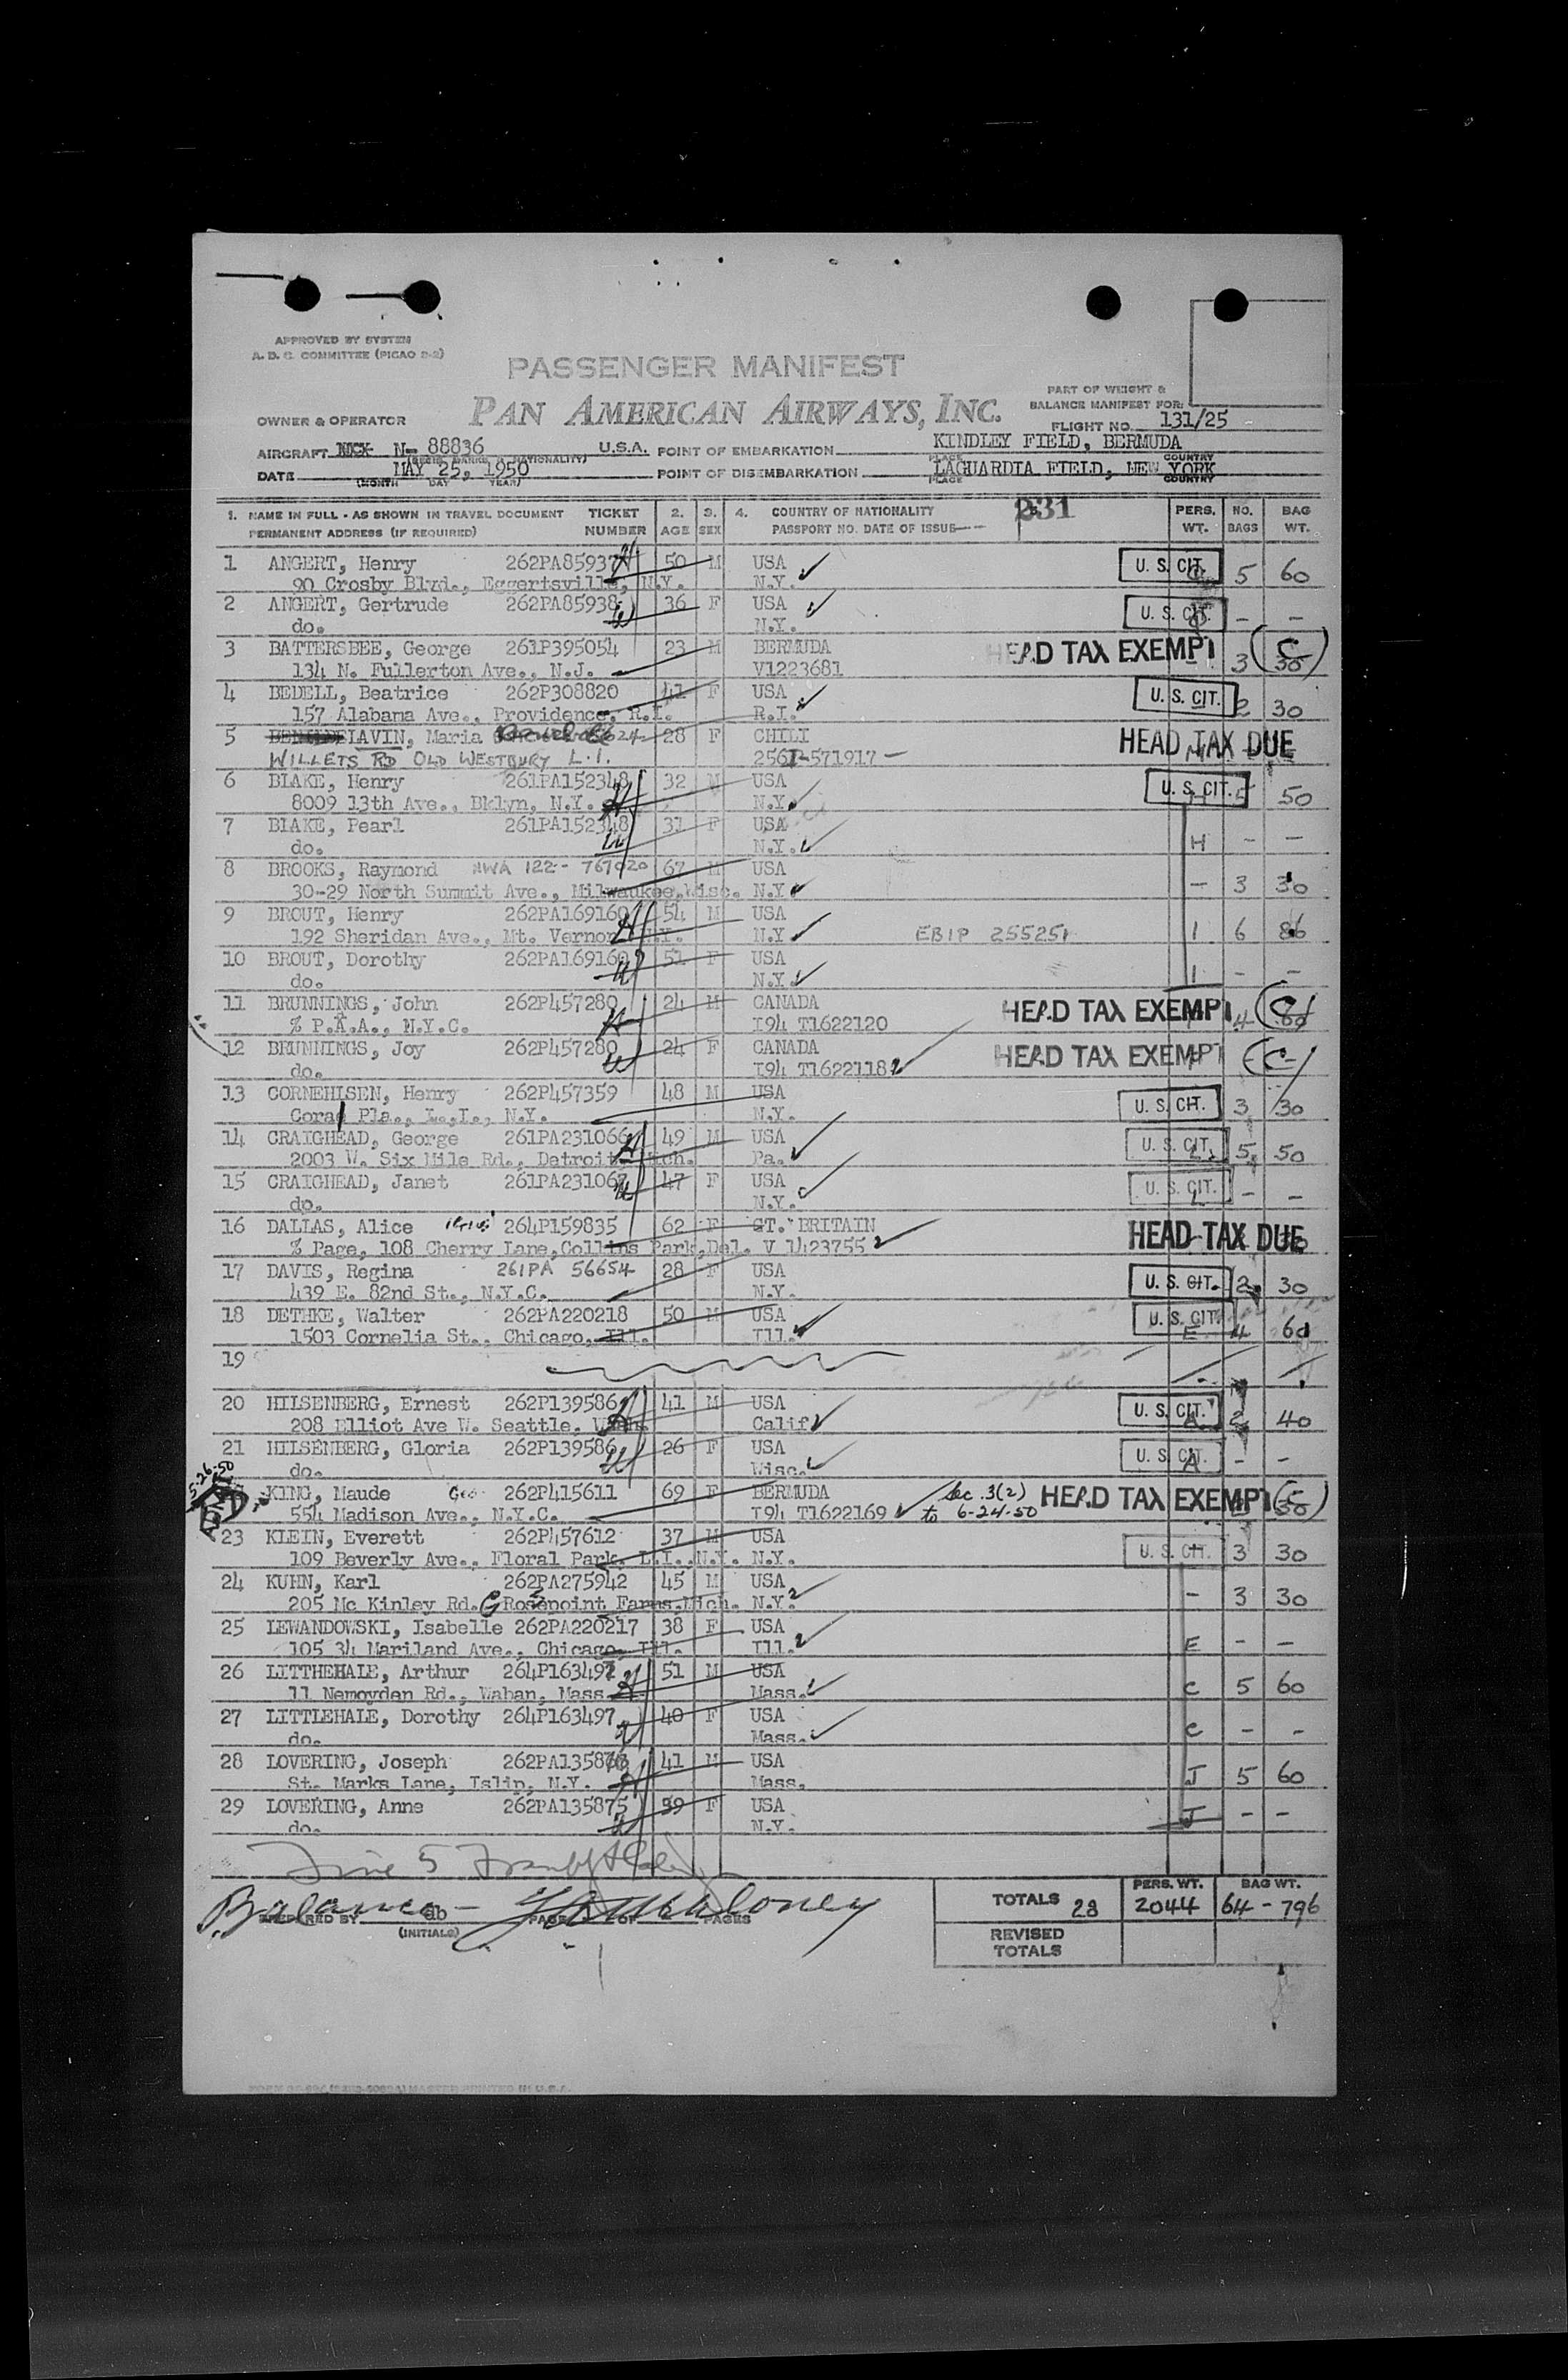 APPROVED BY SYSTEM
A. D. C. COMMITTEE (PICAO D-2)
PASSENGER MANIFEST
PAN AMERICAN AIRWAYS, INC.
PART OF WEIGHT &
BALANCE MANIFEST FOR:
FLIGHT NO. 131/25
OWNER & OPERATOR
AIRCRAFT N- 88836 U.S.A. POINT OF EMBARKATION KINDLEY FIELD, BERMUDA
PLACE COUNTRY
DATE MAY 25, 1950 POINT OF DISEMBARKATION LAGUARDIA FIELD, NEW YORK
(MONTH DAY YEAR) PLACE COUNTRY
231
1. NAME IN FULL - AS SHOWN IN TRAVEL DOCUMENT TICKET 2. 3. 4. COUNTRY OF NATIONALITY PERS. NO. BAG
PERMANENT ADDRESS (IF REQUIRED) NUMBER AGE SEX PASSPORT NO. DATE OF ISSUE WT. BAGS WT.
1 ANGERT, Henry 262PA85937 50 M USA U. S. CIT. 5 60
90 Crosby Blvd., Eggertsville, N.Y. N.Y.
2 ANGERT, Gertrude 262PA85938 36 F USA U. S. CIT. - -
do. N.Y.
3 BATTERSBEE, George 261P395054 23 M BERMUDA HEAD TAX EXEMPT 3 30 C
134 N. Fullerton Ave., N.J. V1223681
4 BEDELL, Beatrice 262P308820 41 F USA U. S. CIT. 2 30
157 Alabama Ave., Providence, R.I. R.I.
5 LAVIN, Maria 28 F CHILI HEAD TAX DUE
WILLETS RD OLD WESTBURY L.I. 256I-571917
6 BLAKE, Henry 261PA152348 32 M USA U. S. CIT. H 5 50
8009 13th Ave., Bklyn, N.Y. N.Y.
7 BLAKE, Pearl 261PA152348 31 F USA H - -
do. N.Y.
8 BROOKS, Raymond NWA 122- 767020 67 M USA - 3 30
30-29 North Summit Ave., Milwaukee, Wisc. N.Y.
9 BROUT, Henry 262PA169160 54 M USA I 6 86
192 Sheridan Ave., Mt. Vernon N.Y. N.Y EBIP 255251
10 BROUT, Dorothy 262PA169160 51 F USA I - -
do. N.Y.
11 BRUNNINGS, John 262P457280 24 M CANADA HEAD TAX EXEMPT 4 C
% P.A.A., N.Y.C. I94 T1622120
12 BRUNNINGS, Joy 262P457280 24 F CANADA HEAD TAX EXEMPT C
do. I94 T1622118
13 CORNEHISEN, Henry 262P457359 48 M USA U. S. CIT. 3 30
Coral Pla., L.I., N.Y. N.Y.
14 CRAIGHEAD, George 261PA231066 49 M USA U. S. CIT. L 5 50
2003 W. Six Mile Rd., Detroit Mich. Pa.
15 CRAIGHEAD, Janet 261PA231067 47 F USA U. S. CIT. L - -
do. N.Y.
16 DALLAS, Alice 264P159835 62 F GT. BRITAIN HEAD TAX DUE
% Page, 108 Cherry Lane, Collins Park, Del. V 1423755
17 DAVIS, Regina 261PA 56654 28 F USA U. S. CIT. 2 30
439 E. 82nd St., N.Y.C. N.Y.
18 DETHKE, Walter 262PA220218 50 M USA U. S. CIT. E 4 60
1503 Cornelia St., Chicago, Ill. Ill.
19
20 HILSENBERG, Ernest 262P139586 41 M USA U. S. CIT. A 2 40
208 Elliot Ave W. Seattle, Wash. Calif
21 HILSENBERG, Gloria 262P139586 26 F USA U. S. CIT. A - -
do. Wisc.
5-26-50
KING, Maude 262P415611 69 F BERMUDA Sec. 3(2) HEAD TAX EXEMPT 30 C
554 Madison Ave., N.Y.C. I94 T1622169 to 6-24-50
23 KLEIN, Everett 262P457612 37 M USA U. S. CIT. 3 30
109 Beverly Ave., Floral Park, L.I. N.Y. N.Y.
24 KUHN, Karl 262PA275942 45 M USA - 3 30
205 Mc Kinley Rd. G Rossepoint Farms, Mich. N.Y.
25 LEWANDOWSKI, Isabelle 262PA220217 38 F USA E - -
105 34 Mariland Ave., Chicago, Ill. Ill.
26 LITTHEHALE, Arthur 264P163497 51 M USA C 5 60
11 Nemoyden Rd., Waban, Mass. Mass.
27 LITTLEHALE, Dorothy 264P163497 40 F USA C - -
do. Mass.
28 LOVERING, Joseph 262PA135876 41 M USA J 5 60
St. Marks Lane, Islip, N.Y. Mass.
29 LOVERING, Anne 262PA135875 39 F USA J - -
do. N.Y.
PREPARED BY ab PAGE OF PAGES
(INITIALS)
Balance -
TOTALS 28 PERS. WT. 2044 BAG WT. 64 - 796
REVISED
TOTALS